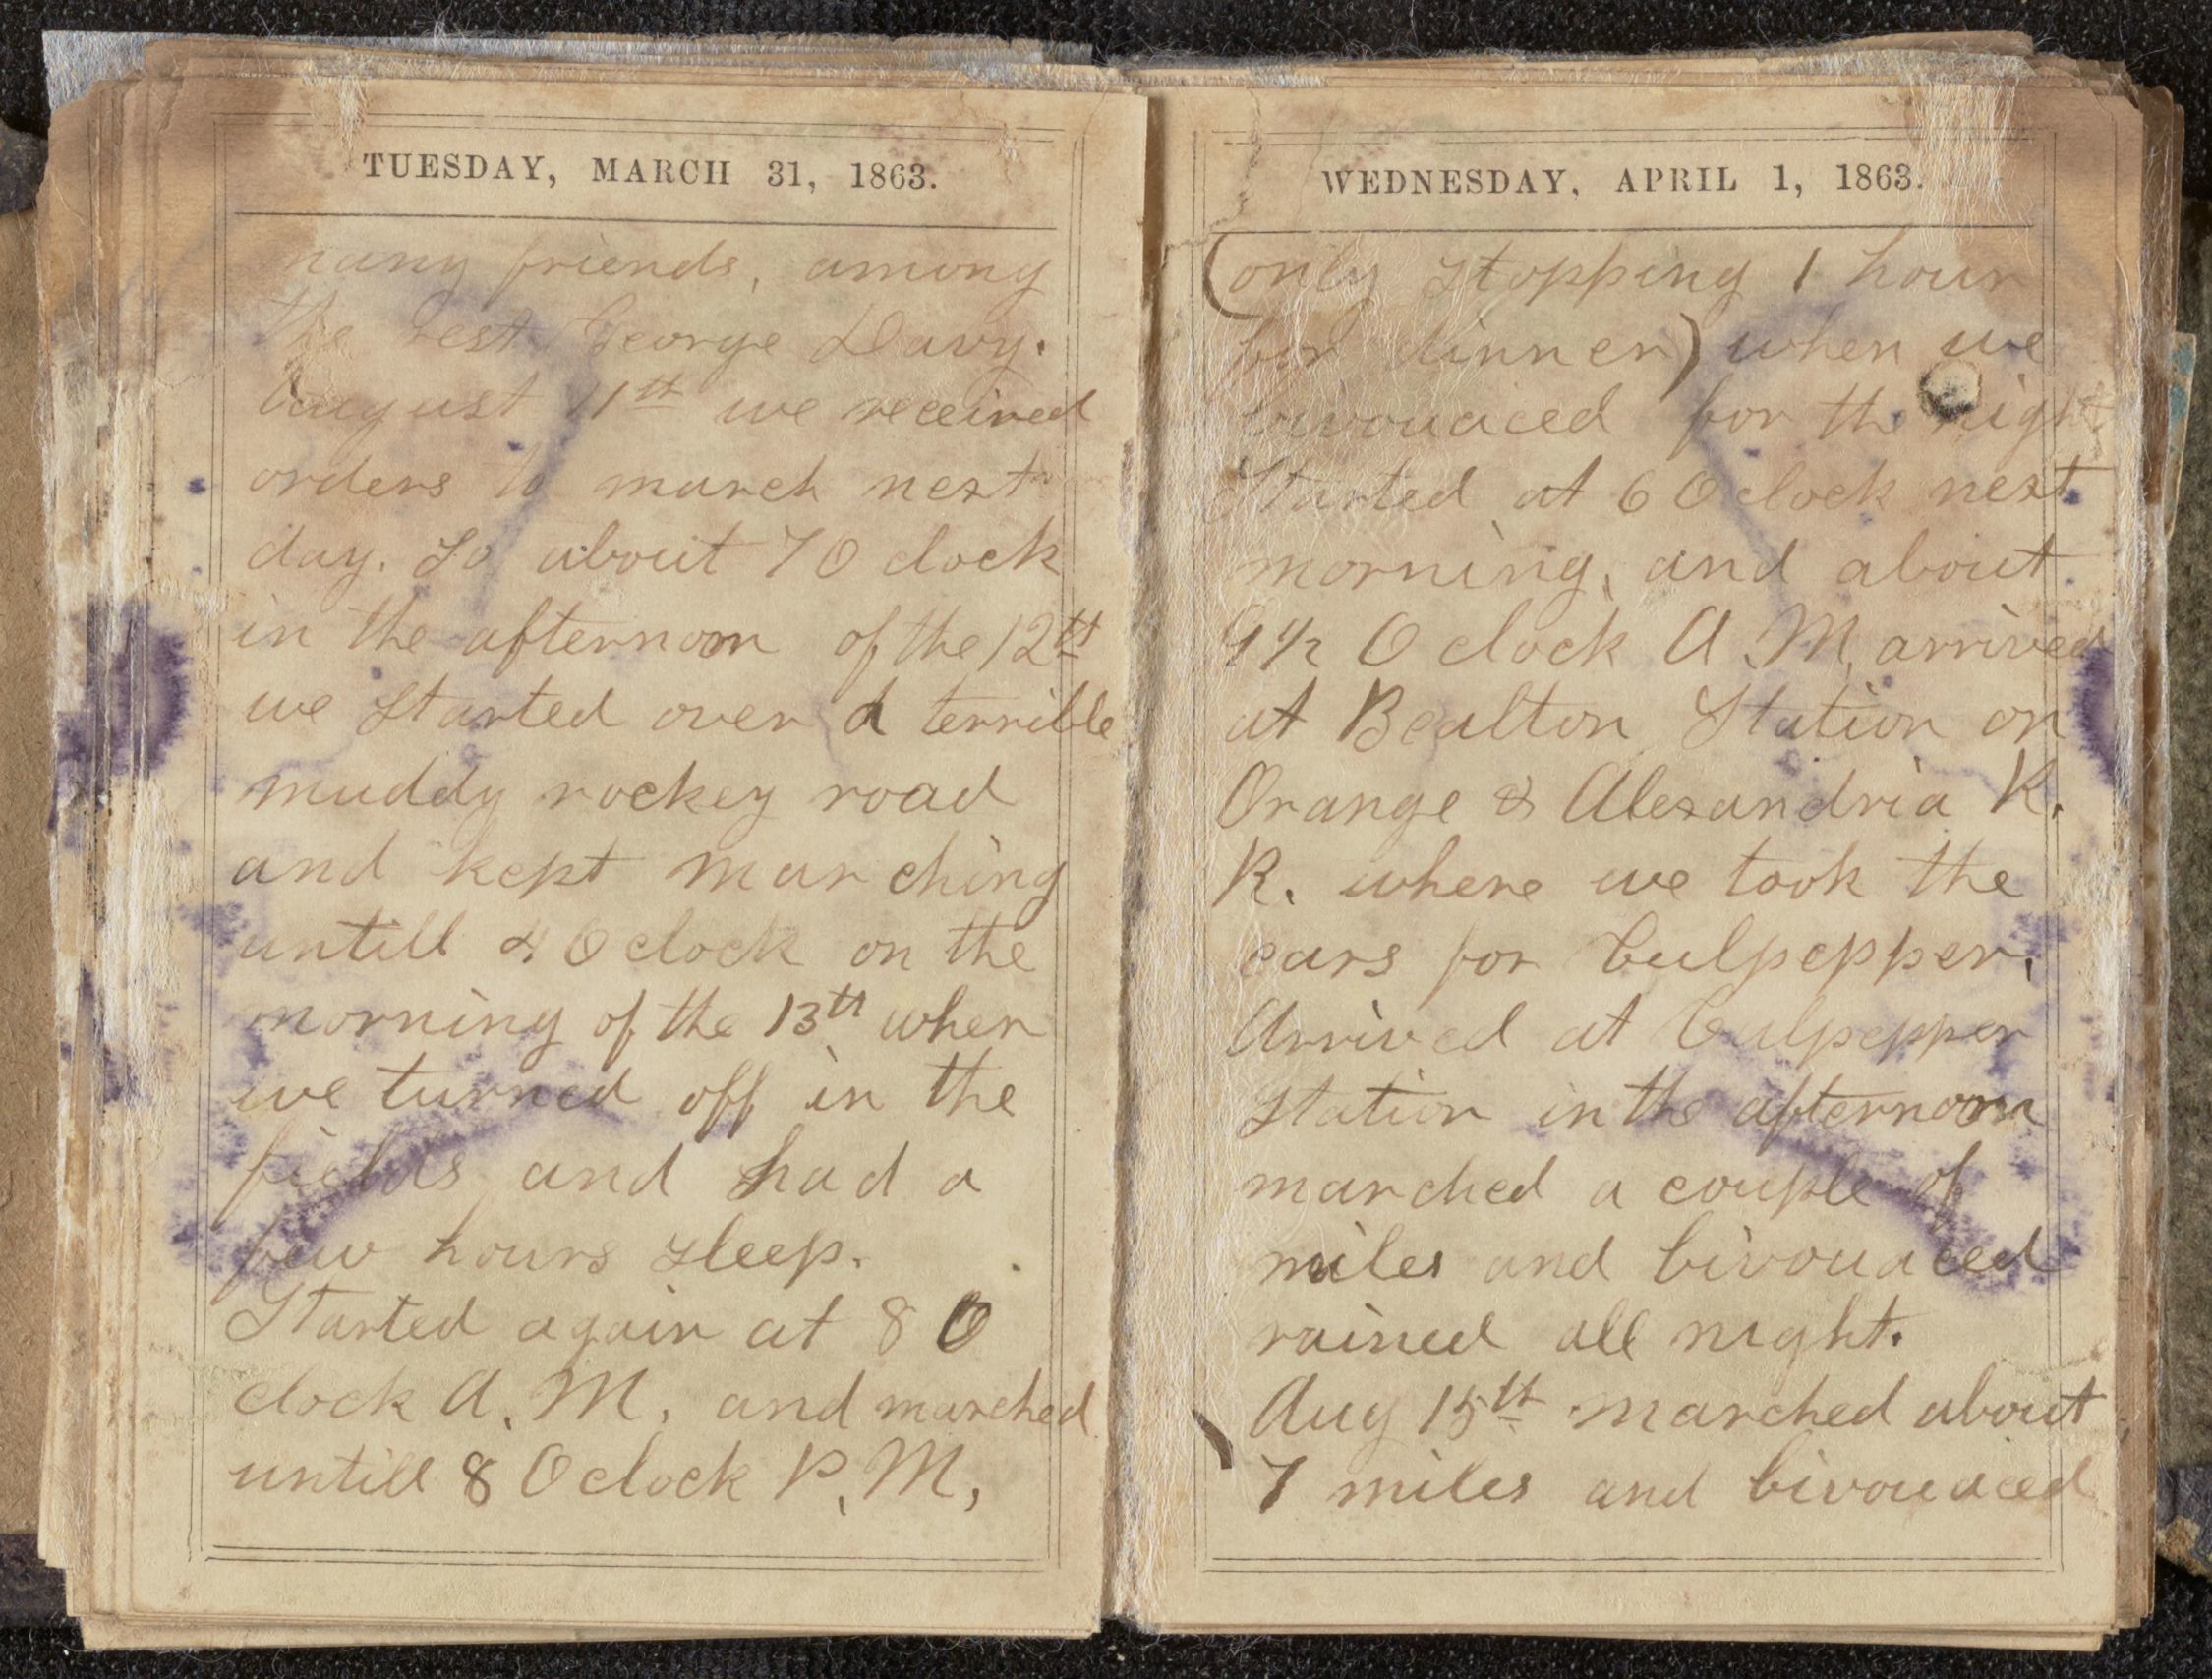 TUESDAY, MARCH 31, 1863.
many friends, among
the rest George Davy.
August 11th we received
orders to march next
day. So about 7 O clock
in the afternoon of the 12th
we started over a terrible
muddy rockey road
and kept marching
untill 4 O clock on the
morning of the 13th when
we turned off in the
fields and had a
few hours sleep.
Started again at 8 O
clock A. M. and marched
untill 8 O clock P. M,
WEDNESDAY, APRIL 1, 1863.
(only stopping 1 hour
for dinner) when we
bivouaced for the night
Started at 6 O clock next
morning, and about
9 1/2 O clock A. M. arrived
at Bealton Station on
Orange & Alexandria R.
R. where we took the
cars for Culpepper.
Arrived at Culpepper
station in the afternoon
marched a couple of
miles and bivouaced
rained all night.
Aug 15th marched about
7 miles and bivouaced